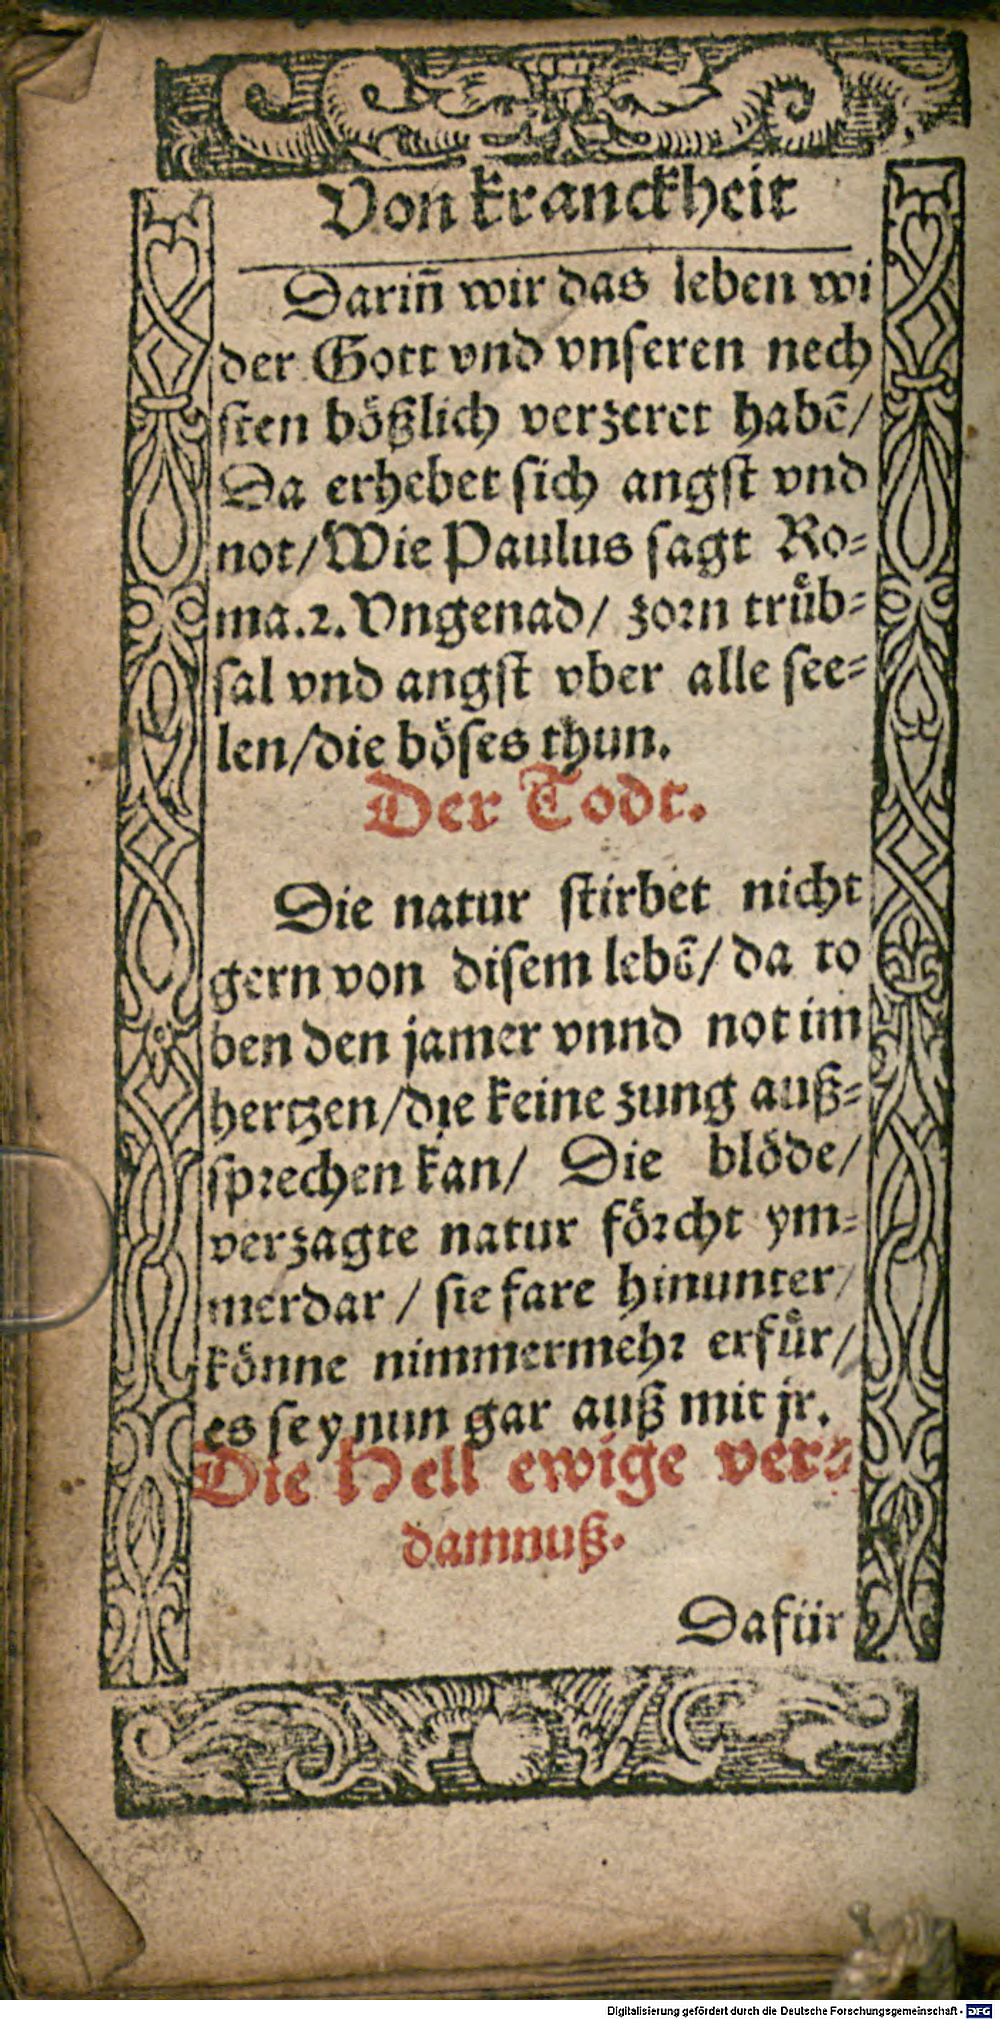 Von kranckheit
Dariñ wir das leben wi
der Gott vnd vnseren nech
sten bößlich verzeret habē/
Da erhebet sich angst vnd
not/Wie Paulus sagt Ro-
ma.2. Vngenad/ zorn truͤb-
sal vnd angst vber alle see-
len/die böses thun.
Der Todt.
Die natur stirbet nicht
gern von disem lebē/ da to
ben den jamer vnnd not im
hertzen/die keine zung auß-
sprechen kan/ Die blöde/
verzagte natur förcht ym-
merdar / sie fare hinunter/
könne nimmermehr erfuͤr/
es sey nun gar auß mit jr.
Die Hell ewige ver-
damnuß.
Dafür
Digitalisierung gefördert durch die Deutsche Forschungsgemeinschaft - DFG